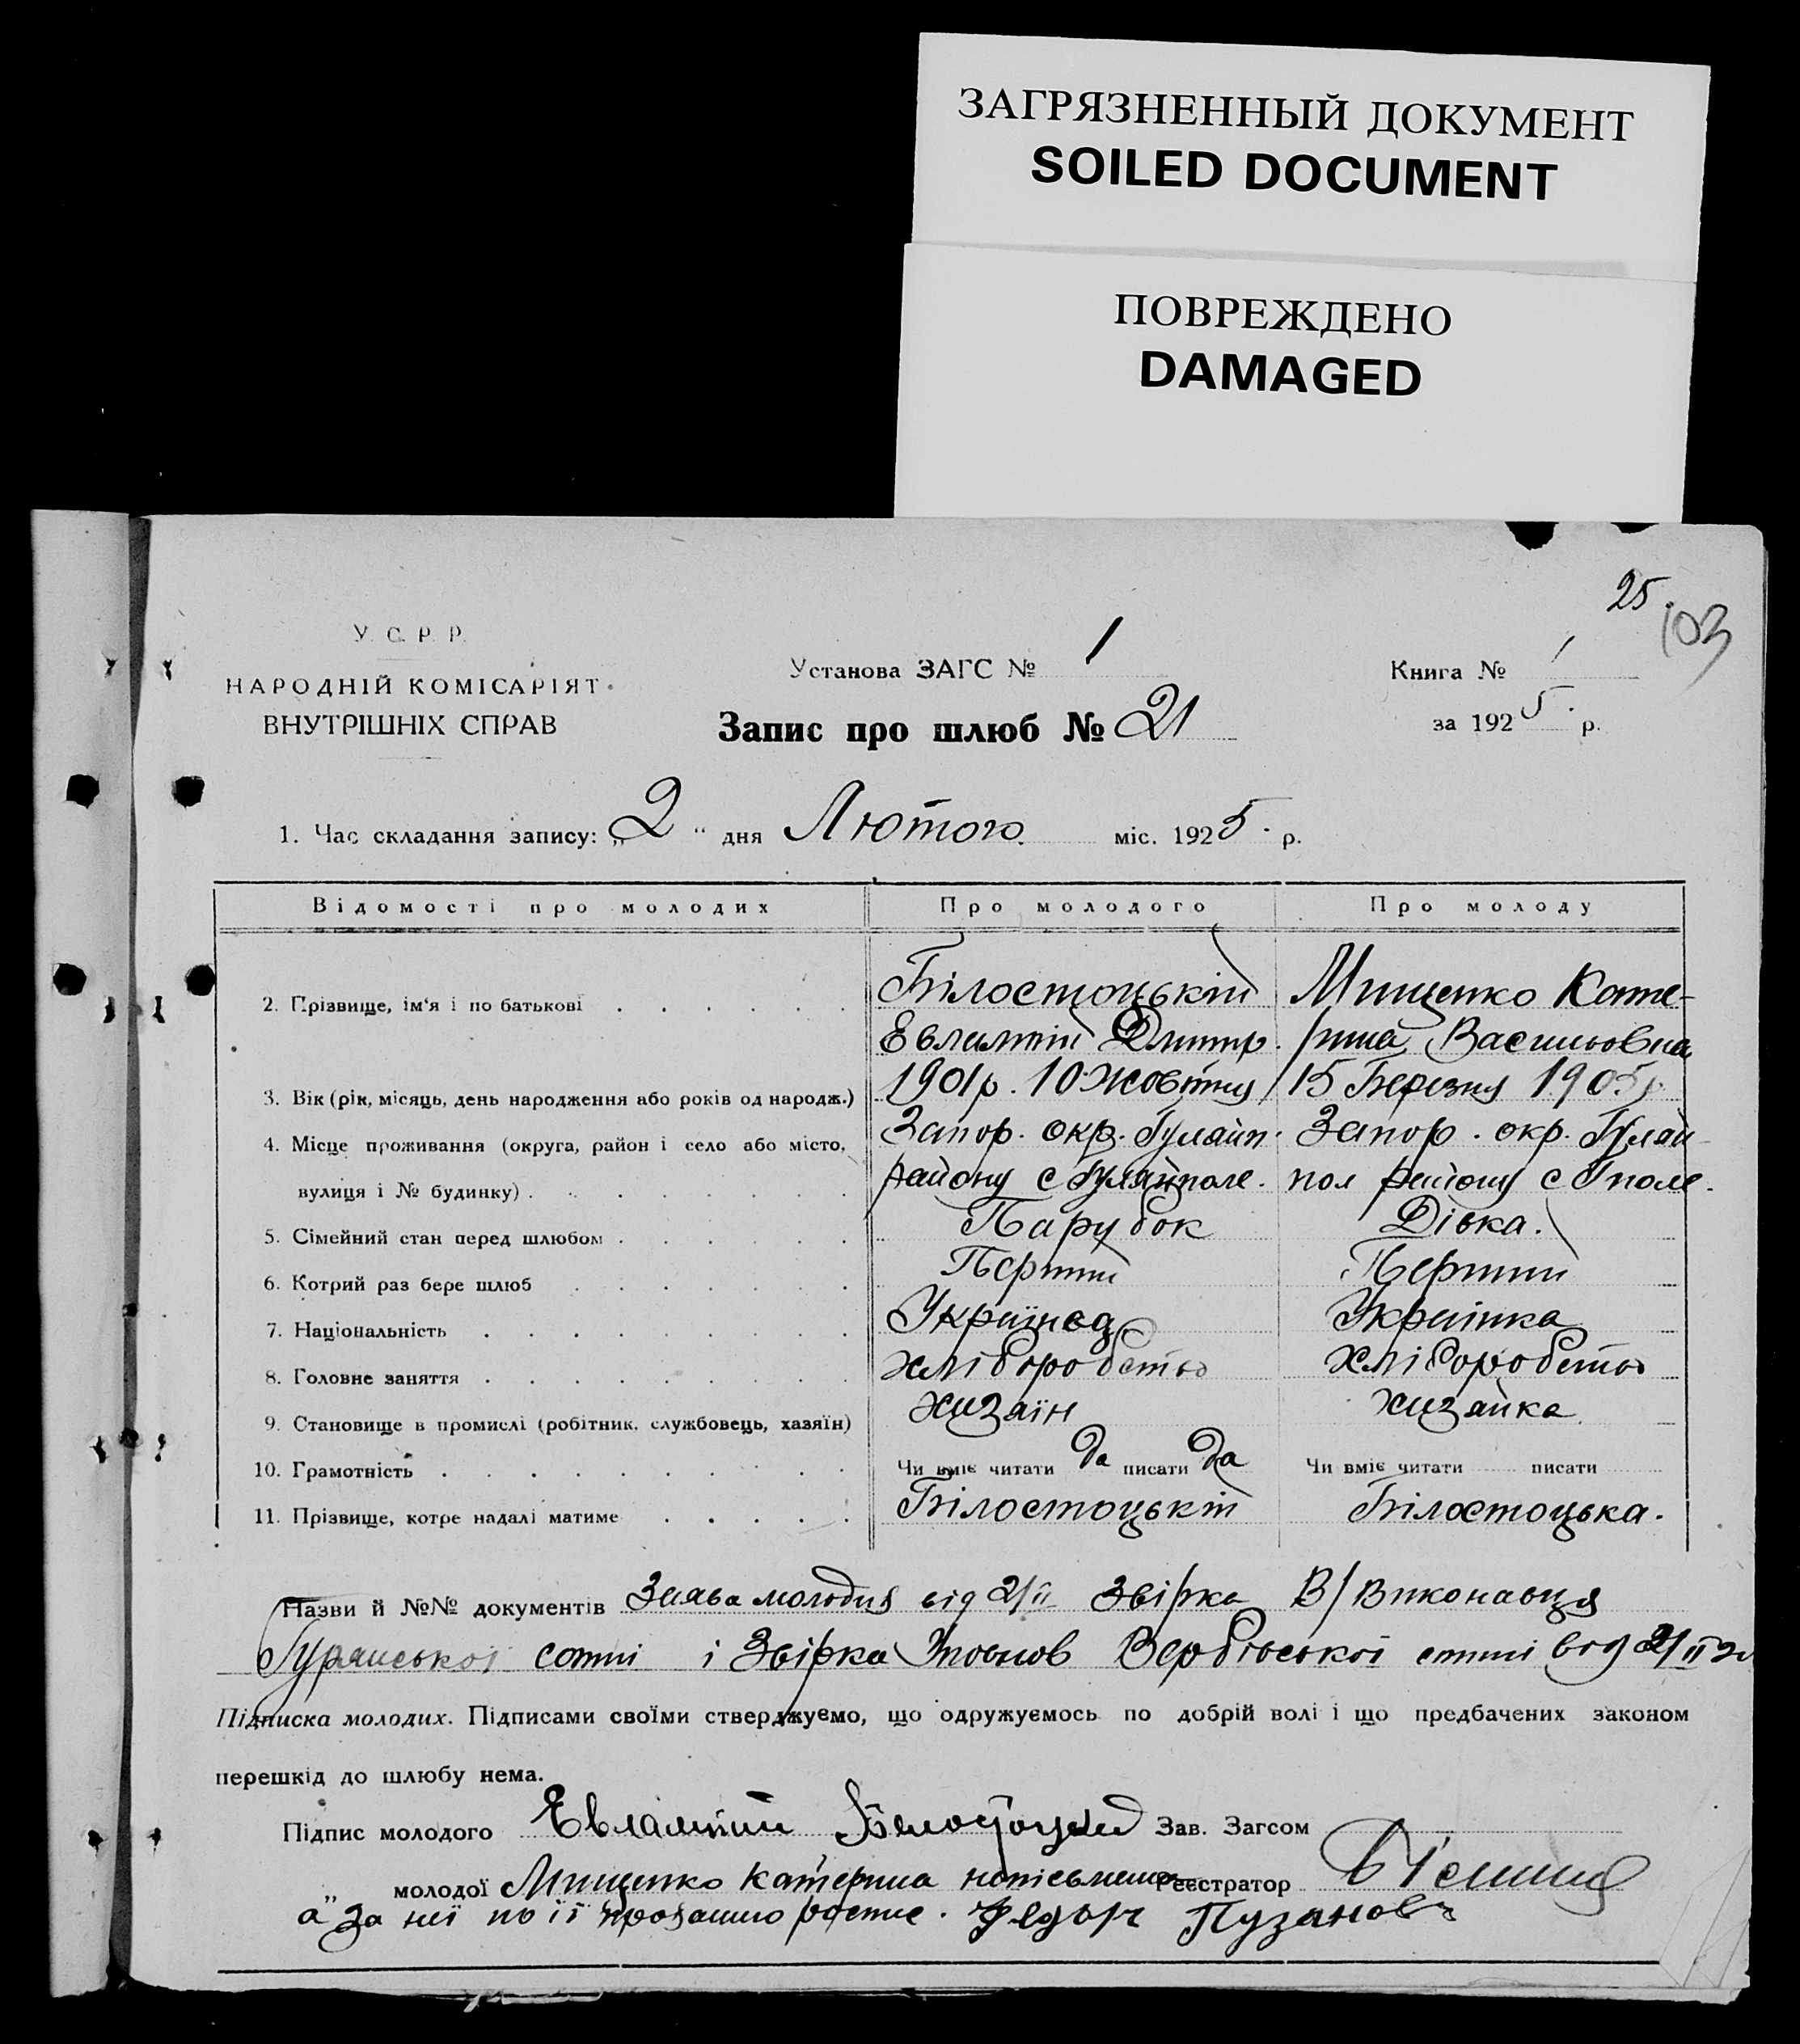 ЗАГРЯЗНЕННЫЙ ДОКУМЕНТ
SOILED DOCUMENT
ПОВРЕЖДЕНО
DAMAGED
25.
103
У. С. Р. Р.
НАРОДНІЙ КОМІСАРІЯТ
ВНУТРІШНІХ СПРАВ
Установа ЗАГС № 1
Запис про шлюб № 21
Книга № 1
за 1925 р.
1. Час складання запису: „2“ дня Лютого міс. 1925 р.
Відомості про молодих Про молодого Про молоду
2. Прізвище, ім'я і по батькові Білостоцькій Мищенко Кате-
Евлампій Дмитр. рина Васильовна
3. Вік (рік, місяць, день народження або років од народж.) 1901р. 10 Жовтня 15 Березня 1905р
4. Місце проживання (округа, район і село або місто, Запор. окр. Гуляйп. Запор. окр. Гуляй-
вулиця і № будинку) району с Гуляйполе. пол району с Гполе.
5. Сімейний стан перед шлюбом Парубок Дівка.
6. Котрий раз бере шлюб Перший Перший
7. Національність Українец Українка
8. Головне заняття хліборобство хліборобство
9. Становище в промислі (робітник, службовець, хазяїн) хазаїн хазайка
10. Грамотність Чи вміє читати да писати да Чи вміє читати писати
11. Прізвище, котре надалі матиме Білостоцькій Білостоцька.
Назви й №№ документів Заява молодих від 2/II Звірка В/Виконавця
сотні і Звірка Вербівської сотні від 2/II
Підписка молодих. Підписами своїми стверджуємо, що одружуємось по добрій волі і що предбачених законом
перешкід до шлюбу нема.
Підпис молодого Евлампий Белостоцкий Зав. Загсом
„ молодої Мищенко Катерина непісьмена Реєстратор
а за неї по її проханню роспис. Федор Пузанов